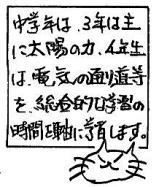 中学年は、3年は主
に太陽の力、4年生
は、電気の通り道等
を、総合的な学習の
時間を軸に学習します。